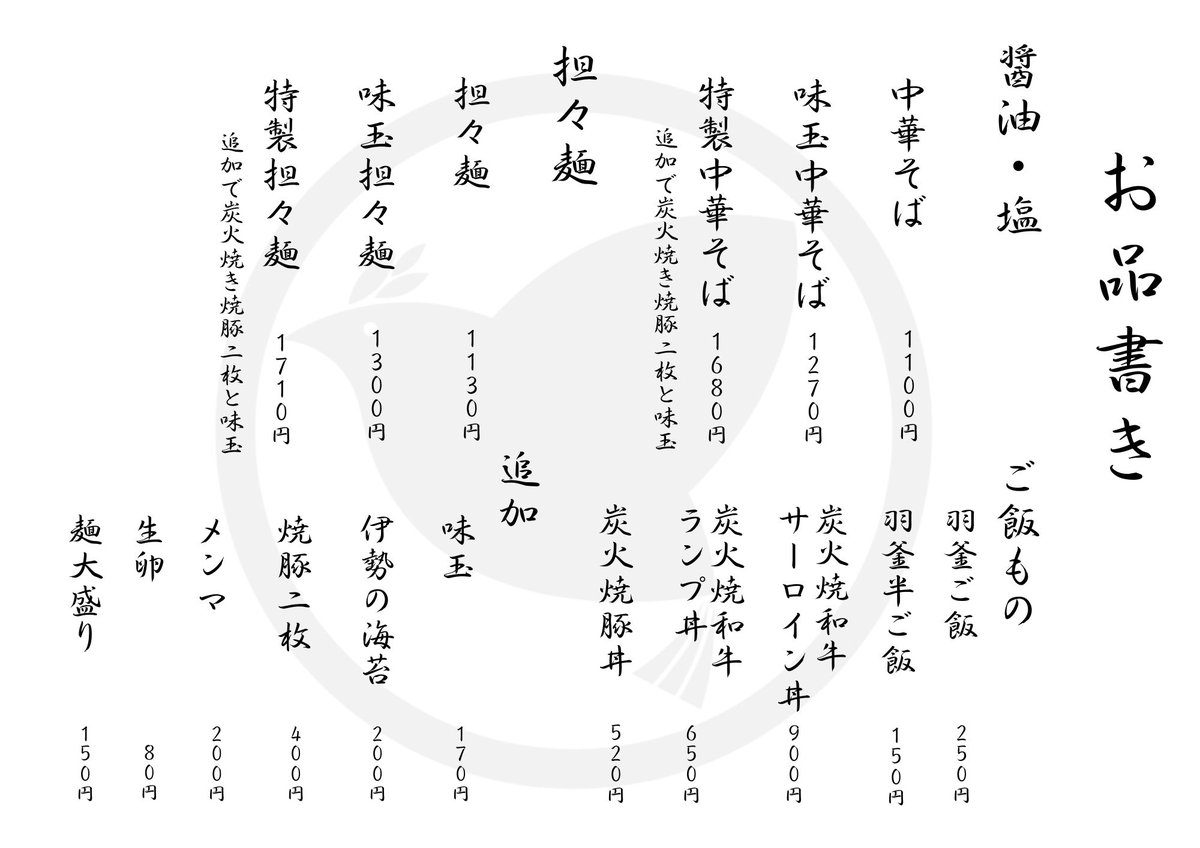 お品書き
醤油・塩
中華そば 1100円
味玉中華そば 1270円
特製中華そば 1680円
追加で炭火焼き焼豚二枚と味玉
担々麺
担々麺 1130円
味玉担々麺 1300円
特製担々麺 1710円
追加で炭火焼き焼豚二枚と味玉
ご飯もの
羽釜ご飯 250円
羽釜半ご飯 150円
炭火焼和牛
サーロイン丼 900円
炭火焼和牛
ランプ丼 650円
炭火焼豚丼 520円
追加
味玉 170円
伊勢の海苔 200円
焼豚二枚 400円
メンマ 200円
生卵 80円
麺大盛り 150円